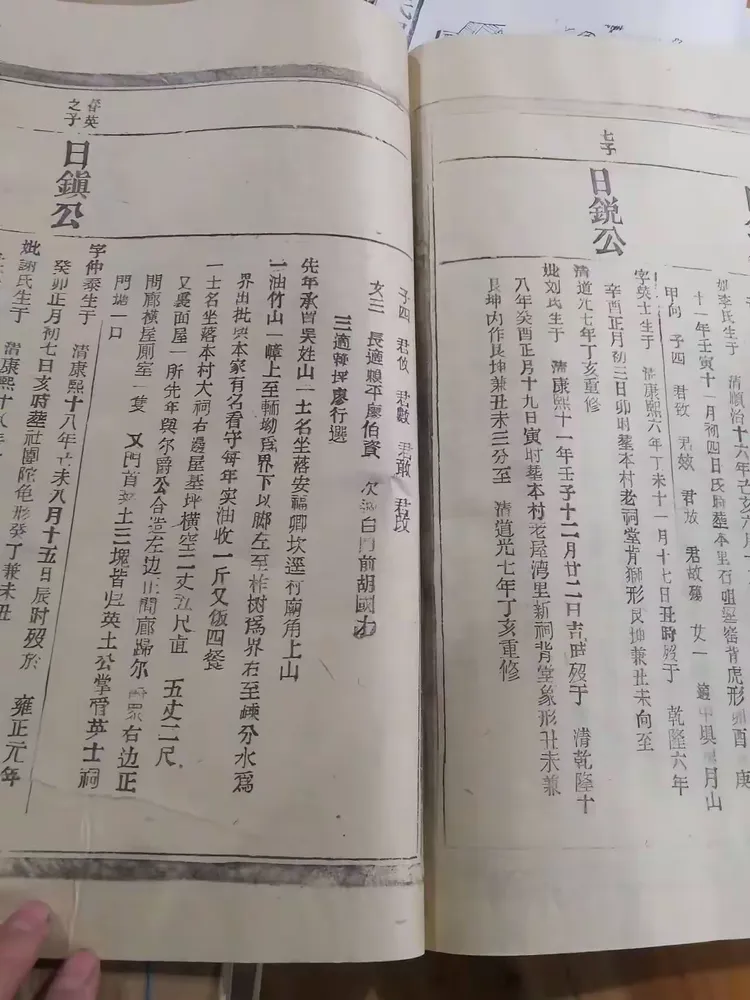 妣李氏生于 清順治十六年
十一年壬寅十一月初四日 时塟本里石咀窑背虎形卯酉 庚
甲向 子四 君玫 君 君放 君故殇 女一 適 月山
七子
日鋭公
字英士生于 清康熙六年丁未十一月十七日丑時殁于 乾隆六年
辛酉正月初三日卯时塟本村老祠堂背獅形艮坤兼丑未向至
清道光七年丁亥重修
妣刘氏生于 清康熙十一年壬子十二月廿二日吉时殁于 清乾隆十
八年癸酉正月十九日寅时塟本村老屋湾里新祠背堂象形丑未兼
艮坤内作艮坤兼丑未三分至 清道光七年丁亥重修
子四 君攸 君數 君敢 君攺
女三 長適 平廖伯資 次 白门前胡國
三適 坪廖行選
先年承買吳姓山一土名坐落安福卿坎逕 廟角上山
一油竹山一嶂上至 坳爲界下以脚左至柞樹爲界右至 分水爲
界出批與本家有名看守每年实油收一斤又飯四餐
一土名坐落本村大祠右邊屋基坪横空二丈五尺直 五丈二尺
又裏面屋一所先年與尔爵公合造左边正間廊歸尔 右边正
間廊横屋厠室一隻 又門首 土三塊皆归英土公掌管英士祠
門 一口
晉英
之子
日鎮公
字仲泰生于 清康熙十八年 未八月十五日辰时殁於 雍正元年
癸卯正月初七日亥時塟社團陀龟形癸丁兼未丑
妣謝氏生于 清康熙十八年